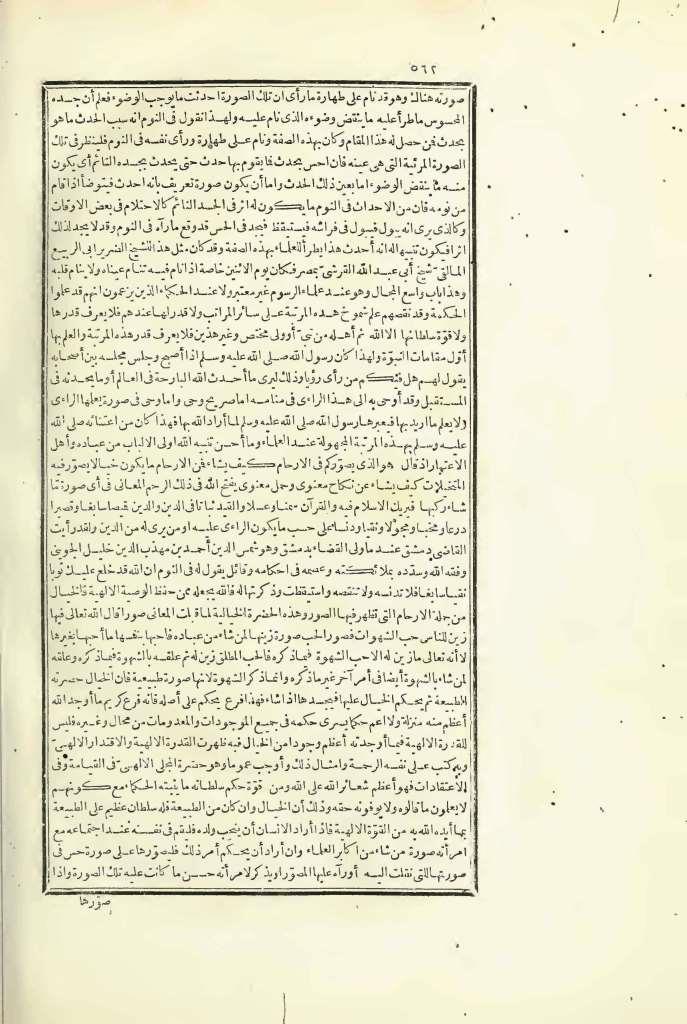 ٥٦٢
صورته هناك وهو قد نام على طهارة ما رأى ان تلك الصورة احدثت ما يوجب الوضوء فعلم أن جسده
المحسوس ما طرأ عليه ما ينقض وضوءه الذى نام عليه ولهذا نقول فى النوم انه سبب الحدث ما هو
بحدث فمن حصل له هذا المقام وكان بهذه الصفة ونام على طهارة ورأى نفسه فى النوم فلينظر فى تلك
الصورة المرئية التى هى عينه فان احس بحدث فما يقوم بها حدث حتى يحدث بجسده النائم أى يكون
منه ما ينقض الوضوء اما بعين ذلك الحدث واما أن يكون صورة تعريف بانه احدث فيتوضأ اذا قام
من نومه فان من الاحداث فى النوم ما يكون له اثر فى الجسد النائم كالاحتلام فى بعض الاوقات
وكالذى يرى انه يبول فيبول فى فراشه فيستيقظ فيجد فى الحس قد وقع ما رآه فى النوم وقد لا يجد لذلك
اثرا فيكون تنبيها له انه أحدث هذا يطرأ للعلماء بهذه الصفة وقد كان مثل هذا للشيخ الضرير ابى الربيع
المالقى شيخ أبى عبد الله القرشى بمصر فكان يوم الاثنين خاصة اذا نام فيه تنام عيناه ولا ينام قلبه
وهذا باب واسع المجال وهو عند علماء الرسوم غير معتبر ولا عند الحكماء الذين يزعمون انهم قد علموا
الحكمة وقد نقصهم علم شموخ هذه المرتبة على سائر المراتب ولا قدر لها عندهم فلا يعرف قدرها
ولا قوة سلطانها الا الله ثم أهله من نبى أو ولى مختص وغير هذين فلا يعرف قدر هذه المرتبة والعلم بها
أول مقامات النبوة ولهذا كان رسول الله صلى الله عليه وسلم اذا أصبح وجلس مجلسه بين أصحابه
يقول لهم هل فيكم من رأى رؤيا وذلك ليرى ما أحدث الله البارحة فى العالم أو ما يحدثه فى
المستقبل وقد أوحى به الى هذا الرائى فى منامه اما صريح وحى واما وحى فى صورة يعلمها الرائى
ولا يعلم ما اريد بها فيعبرها رسول الله صلى الله عليه وسلم لما أراد الله بها فهذا كان من اعتنائه صلى الله
عليه وسلم بهذه المرتبة المجهولة عند العلماء وما أحسن تنبيه الله اولى الالباب من عباده وأهل
الاعتبار اذ قال هو الذى يصوركم فى الارحام كيف يشاء فمن الارحام ما يكون خيالا يصور فيه
المتخيلات كيف يشاء عن نكاح معنوى وحمل معنوى يفتح الله فى ذلك الرحم المعانى فى أى صورة ما
شاء ركبها فيريك الاسلام قبة والقرآن سمنا وعسلا والقيد ثباتا فى الدين والدين قميصا سابغا وقصيرا
درعا ومجنبا ومجولا ونقيا ودنسا على حسب ما يكون الرائى عليه او من يرى له من الدين ولقد رأيت
القاضى دمشق عند ما ولى القضاء بدمشق وهو شمس الدين أحمد بن مهذب الدين خليل الجوينى
وفقه الله وسدده بملائكته وعصمه فى احكامه وقائل يقول له فى النوم ان الله قد خلع عليك ثوبا
نقيا سابغا فلا تدنسه ولا تنقصه واستيقظت وذكرتها له فالله يجعله ممن حفظ الوصية الالهية فالخيال
من جملة الارحام التى تظهر فيها الصور وهذه الحضرة الخيالية لما قبلت المعانى صورا قال الله تعالى فيها
زين للناس حب الشهوات فصور الحب صورة زينها لمن شاء من عباده فأحبها بنفسها ما أحبها بغيرها
لانه تعالى ما زين له الا حب الشهوة فيما ذكره فالحب المطلق زين له ثم علقه بالشهوة فيما ذكره وعلقه
لمن شاء بالشهوة أيضا فى أمر آخر غير ما ذكره وانما ذكر الشهوة لانها صورة طبيعية فان الخيال حضرته
الطبيعة ثم يحكم الخيال عليها فيجسدها اذا شاء فهذا فرع يحكم على أصله فانه فرع كريم ما أوجد الله
أعظم منه منزلة ولا اعم حكما يسرى حكمه فى جميع الموجودات والمعدومات من محال وغيره فليس
للقدرة الالهية فيما أوجدته أعظم وجودا من الخيال فبه ظهرت القدرة الالهية والاقتدار الالهى
وبه كتب على نفسه الرحمة وامثال ذلك وأوجب عموما وهو حضرة المجلى الالهى فى القيامة وفى
الاعتقادات فهو أعظم شعائر الله على الله ومن قوة حكم سلطانه ما يثبته الحكماء مع كونهم
لا يعلمون ما قالوه ولا يوفونه حقه وذلك أن الخيال وان كان من الطبيعة فله سلطان عظيم على الطبيعة
بما أيده الله به من القوة الالهية فاذا أراد الانسان أن ينجب ولده فليقم فى نفسه عند اجتماعه مع
امرأته صورة من شاء من اكابر العلماء وان أراد أن يحكم أمر ذلك فليصورها على صورة حسن فى
صورتها التى نقلت اليه أو رآه عليها المصور اويذكر لامرأته حسن ما كانت عليه تلك الصورة واذا
صورها